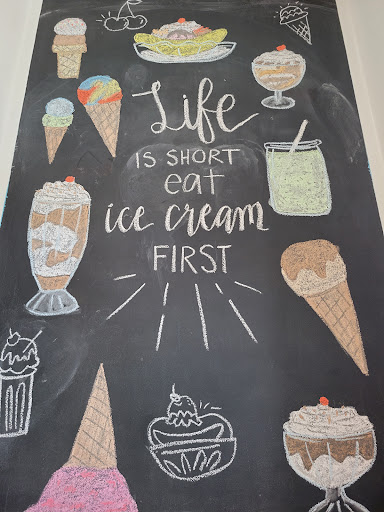 Life
IS SHORT
eat
ice cream
FIRST